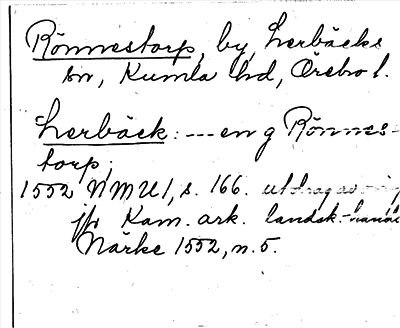 Rönnestorp, by, Lerbäcks
sn, Kumla hd, Örebro l.
Lerbäck: --- en g Rönnes-
torp;
1552 NMU 1, s. 166. utdrag av
jfr Kam. ark. landsk.-handl.
Närke 1552, n. 5.